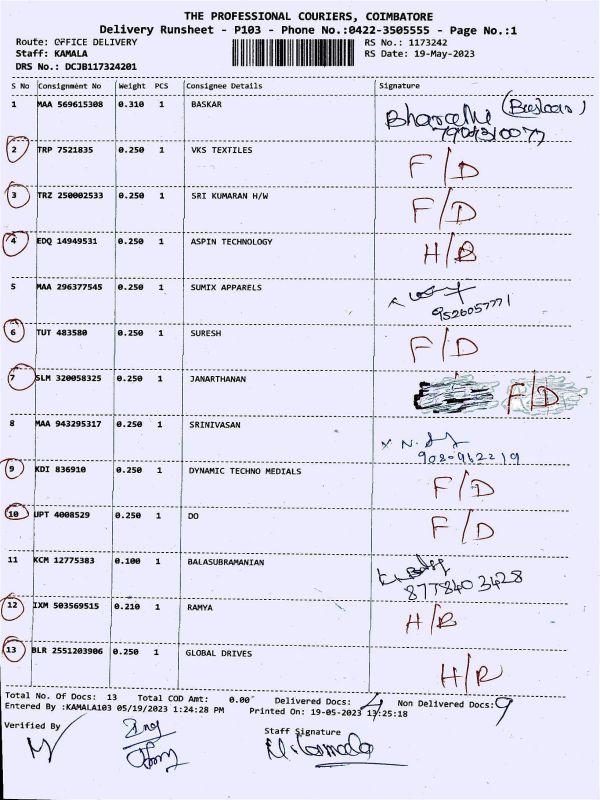 THE PROFESSIONAL COURIERS, COIMBATORE
Delivery Runsheet - P103 - Phone No.:0422-3505555 - Page No.:1
Route: OFFICE DELIVERY RS No.: 1173242
Staff: KAMALA RS Date: 19-May-2023
DRS No.: DCJB117324201
S No Consignment No Weight PCS Consignee Details Signature
1 MAA 569615308 0.310 1 BASKAR (Baskar)
2 TRP 7521835 0.250 1 VKS TEXTILES F/D
3 TRZ 250002533 0.250 1 SRI KUMARAN H/W F/D
4 EDQ 14949531 0.250 1 ASPIN TECHNOLOGY H/B
5 MAA 296377545 0.250 1 SUMIX APPARELS 9526057771
6 TUT 483580 0.250 1 SURESH F/D
7 SLM 320058325 0.250 1 JANARTHANAN F/D
8 MAA 943295317 0.250 1 SRINIVASAN 9080962219
9 KDI 836910 0.250 1 DYNAMIC TECHNO MEDIALS F/D
10 UPT 4008529 0.250 1 DO F/D
11 KCM 12775383 0.100 1 BALASUBRAMANIAN 8778403428
12 IXM 503569515 0.210 1 RAMYA H/B
13 BLR 2551203906 0.250 1 GLOBAL DRIVES H/R
Total No. Of Docs: 13 Total COD Amt: 0.00 Delivered Docs: 4 Non Delivered Docs: 9
Entered By :KAMALA103 05/19/2023 1:24:28 PM Printed On: 19-05-2023 13:25:18
Verified By Staff Signature